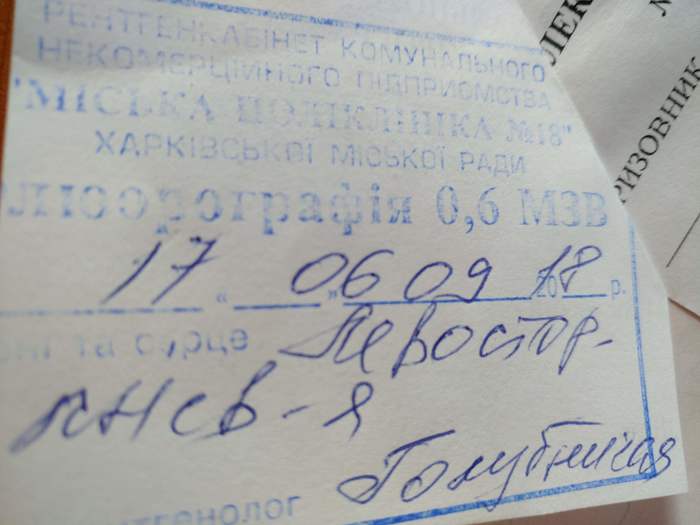 РЕНТГЕНКАБІНЕТ КОМУНАЛЬНОГО
НЕКОМЕРЦІЙНОГО ПІДПРИЄМСТВА
"МІСЬКА ПОЛІКЛІНІКА №18"
ХАРКІВСЬКОЇ МІСЬКОЇ РАДИ
люорографія 0,6 МЗВ
17 " 06 09 2018 р.
ені та серце Левостор.
пнев-я
нтгенолог Голубничая
ЛЕК
РИЗОВНИК